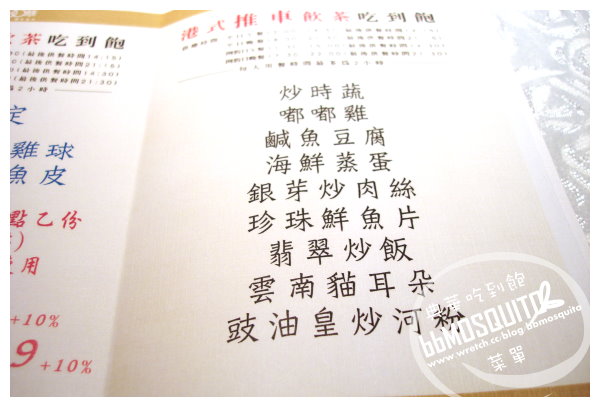 茶吃到飽
最後供餐時間14:15)
最後供餐時間21:15)
最後供餐時間14:30)
最後供餐時間21:30)
2小時
定
雞球
魚皮
點乙份
用
+10%
9+10%
港式推車飲茶吃到飽
每人用餐時間最多為2小時
炒時蔬
嘟嘟雞
鹹魚豆腐
海鮮蒸蛋
銀芽炒肉絲
珍珠鮮魚片
翡翠炒飯
雲南貓耳朵
豉油皇炒河粉
典華吃到飽
bbMOSQUITO
www.wretch.cc/blog/bbmosquito
菜單